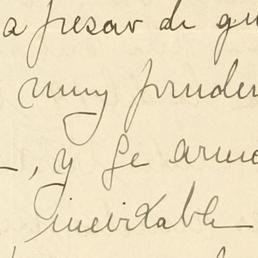 a pesar de qu
muy pruden
, y se arm
inevitable